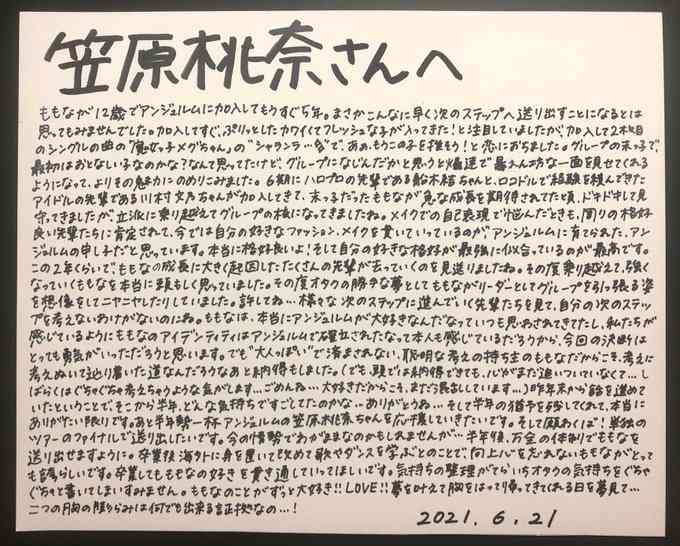 笠原桃奈さんへ
ももなが12歳でアンジュルムに加入してもうすぐ5年。まさかこんなに早く次のステップへ送り出すことになるとは
思ってもみませんでした。加入してすぐ、ぷりっとしたカワイくてフレッシュな子が入ってきた!と注目していましたが、加入して2枚目
のシングルの曲の「魔女っ子メグちゃん」の"シャランラ…"で、あぁ、もうこの子を推そう!と恋におちました。グループの末っ子で、
最初はおとなしい子なのかな?なんて思ってたけど、グループになじんだかと思うと爆速で暴れん坊な一面を見せてくれる
ようになって、よりその魅力にのめりこみました。6期にハロプロの先輩である船木結ちゃんと、ロコドルで経験を積んできた
アイドルの先輩である川村文乃ちゃんが加入してきて、末っ子だったももなが急な成長を期待されてた頃、ドキドキして見
守ってきましたが、立派に乗り越えてグループの核になってきましたね。メイクでの自己表現で悩んだときも、周りの格好
良い先輩たちに肯定されて、今では自分の好きなファッション、メイクを貫いていっているのがアンジュルムに育てられた、アン
ジュルムの申し子だと思っています。本当に格好良いよ!そして自分の好きな格好が最強に似合っているのが最高です。
この2年くらいで、ももなの成長に大きく起因したたくさんの先輩が去っていくのを見送りましたね。その度乗り越えて、強く
なっていくももなを本当に頼もしく思っていました。その度オタクの勝手な夢としてももながリーダーとしてグループを引っ張る姿
を想像をしてニヤニヤしたりしていました。許してね…様々な次のステップに進んでいく先輩たちを見て、自分の次のステッ
プを考えないわけがないのにね。ももなは、本当にアンジュルムが大好きなんだなっていつも思わされてきてたし、私たちが
感じているようにももなのアイデンティティはアンジュルムで確立されたなって本人も感じているだろうから、今回の決断は
とっても勇気がいっただろうと思います。でも"大人っぽい"で済まされない、聡明な考えの持ち主のももなだからこそ、考えに
考えぬいて辿り着いた道なんだろうなあと納得もしました。(でも頭では納得できても、心がまだ追いついていなくて…し
ばらくはぐちゃぐちゃ考えちゃうような気がします…ごめんね…大好きだからこそ、まだ
昨年末から話を進めて
いたということで、そこから半年、どんな気持ちですごしてたのかな…ありがとうね…そして半年の猶予を残してくれて、本当に
ありがたい限りです。あと半年勢一杯アンジュルムの笠原桃奈ちゃんを応援していきたいです。そして願わくば!単独の
ツアーのファイナルで送り出したいです。今の情勢でわがままなのかもしれませんが…半年後、万全の体制でももなを
送り出せますように。卒業後海外に身を置いて改めて歌やダンスを学ぶとのことで、向上心を忘れないももながとって
も誇らしいです。卒業してもももなの好きを貫き通していってほしいです。気持ちの整理がてらいちオタクの気持ちをぐちゃ
ぐちゃと書いてしまいすみません。ももなのことがずっと大好き!!LOVE!!夢を叶えて胸をはって帰ってきてくれる日を夢見て…
二つの胸の膨らみは何でも出来る証拠なの…!
2021.6.21